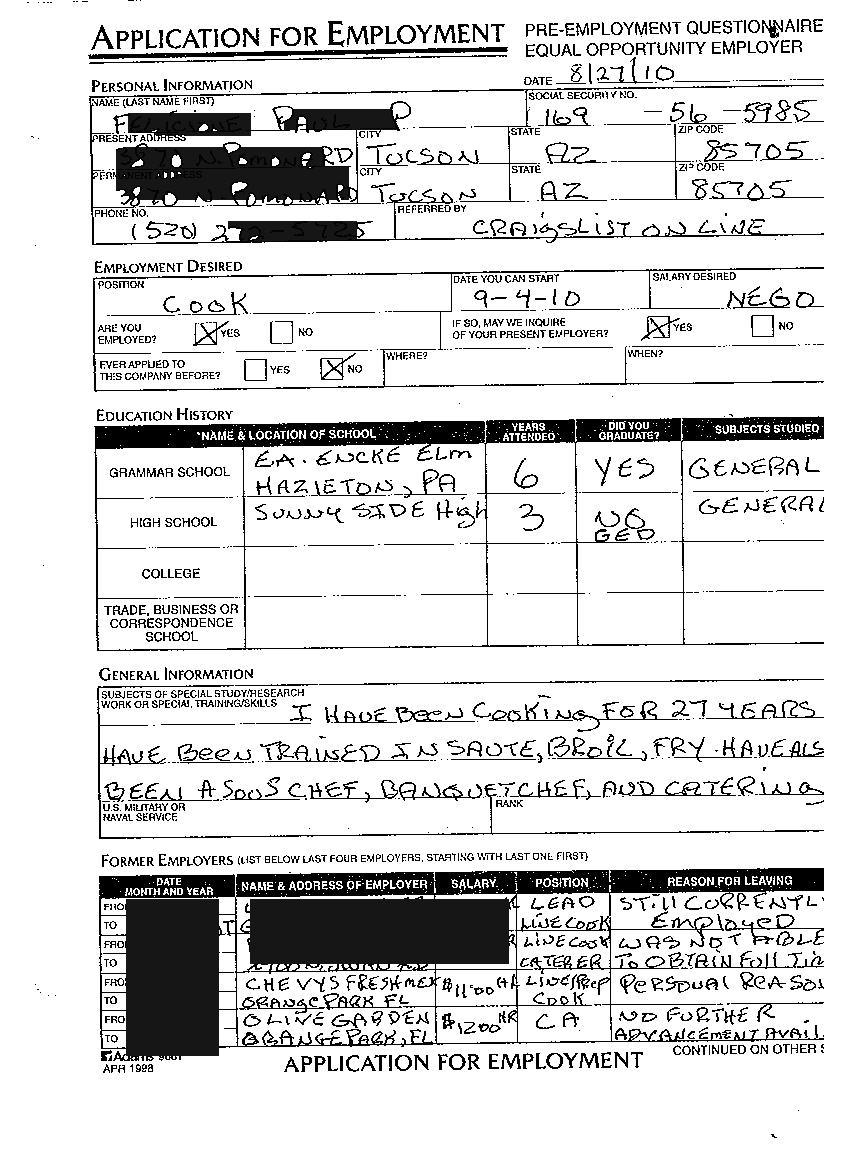 APPLICATION FOR EMPLOYMENT
PRE-EMPLOYMENT QUESTIONNAIRE
EQUAL OPPORTUNITY EMPLOYER
PERSONAL INFORMATION
DATE 8/27/10
NAME (LAST NAME FIRST)
SOCIAL SECURITY NO.
169 - 56 - 5985
PRESENT ADDRESS CITY STATE ZIP CODE
TUCSON AZ 85705
CITY STATE ZIP CODE
TUCSON AZ 85705
PHONE NO. REFERRED BY
(520) CRAIGSLIST ON LINE
EMPLOYMENT DESIRED
POSITION DATE YOU CAN START SALARY DESIRED
COOK 9-4-10 NEGO
ARE YOU EMPLOYED? YES NO IF SO, MAY WE INQUIRE OF YOUR PRESENT EMPLOYER? YES NO
EVER APPLIED TO THIS COMPANY BEFORE? YES NO WHERE? WHEN?
EDUCATION HISTORY
NAME & LOCATION OF SCHOOL YEARS ATTENDED DID YOU GRADUATE? SUBJECTS STUDIED
GRAMMAR SCHOOL E.A. ENCKE ELM HAZLETON, PA 6 YES GENERAL
HIGH SCHOOL SUNNY SIDE High 3 NO GED GENERAL
COLLEGE
TRADE, BUSINESS OR CORRESPONDENCE SCHOOL
GENERAL INFORMATION
SUBJECTS OF SPECIAL STUDY/RESEARCH
WORK OR SPECIAL TRAINING/SKILLS I HAVE BEEN COOKING FOR 27 YEARS
HAVE BEEN TRAINED IN SAUTE, BROIL, FRY. HAVE ALS
BEEN A SOUS CHEF, BANQUET CHEF, AND CATERING
U.S. MILITARY OR NAVAL SERVICE RANK
FORMER EMPLOYERS (LIST BELOW LAST FOUR EMPLOYERS, STARTING WITH LAST ONE FIRST)
DATE MONTH AND YEAR NAME & ADDRESS OF EMPLOYER SALARY POSITION REASON FOR LEAVING
FRO LEAD STILL CURRENTL
TO LINE COOK EMPLOYED
FRO LINE COOK WAS NOT ABLE
TO CATERER TO OBTAIN FULL TIM
FRO CHEVYS FRESH MEX $11.00 HR LINE/PREP PERSONAL REASO
TO ORANGE PARK FL COOK
FRO OLIVE GARDEN $12.00 HR CA NO FURTHER
TO ORANGE PARK, FL ADVANCEMENT AVAIL
Adams 9661
APR 1998
APPLICATION FOR EMPLOYMENT
CONTINUED ON OTHER S